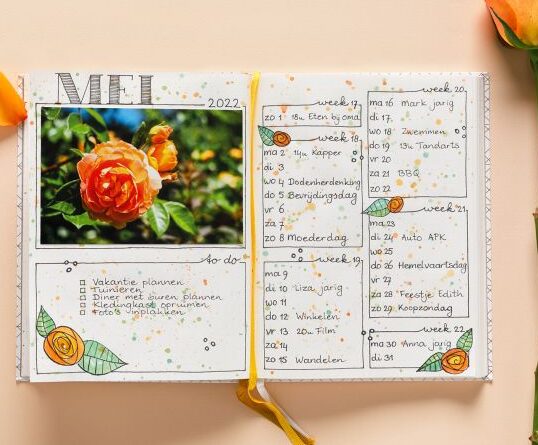 MEI
2022
to do
Vakantie plannen
Tuinieren
Diner met buren plannen
Kledingkast opruimen
Foto's inplakken
week 17
zo 1 18u Eten bij oma
week 18
ma 2 14u Kapper
di 3
wo 4 Dodenherdenking
do 5 Bevrijdingsdag
vr 6
za 7
zo 8 Moederdag
week 19
ma 9
di 10 Liza jarig
wo 11
do 12 Winkelen
vr 13 20u Film
za 14
zo 15 Wandelen
week 20
ma 16 mark jarig
di 17
wo 18 Zwemmen
do 19 13u Tandarts
vr 20
za 21 BBQ
zo 22
week 21
ma 23
di 24 Auto APK
wo 25
do 26 Hemelvaartsdag
vr 27
za 28 Feestje Edith
zo 29 Koopzondag
week 22
ma 30 Anna jarig
di 31